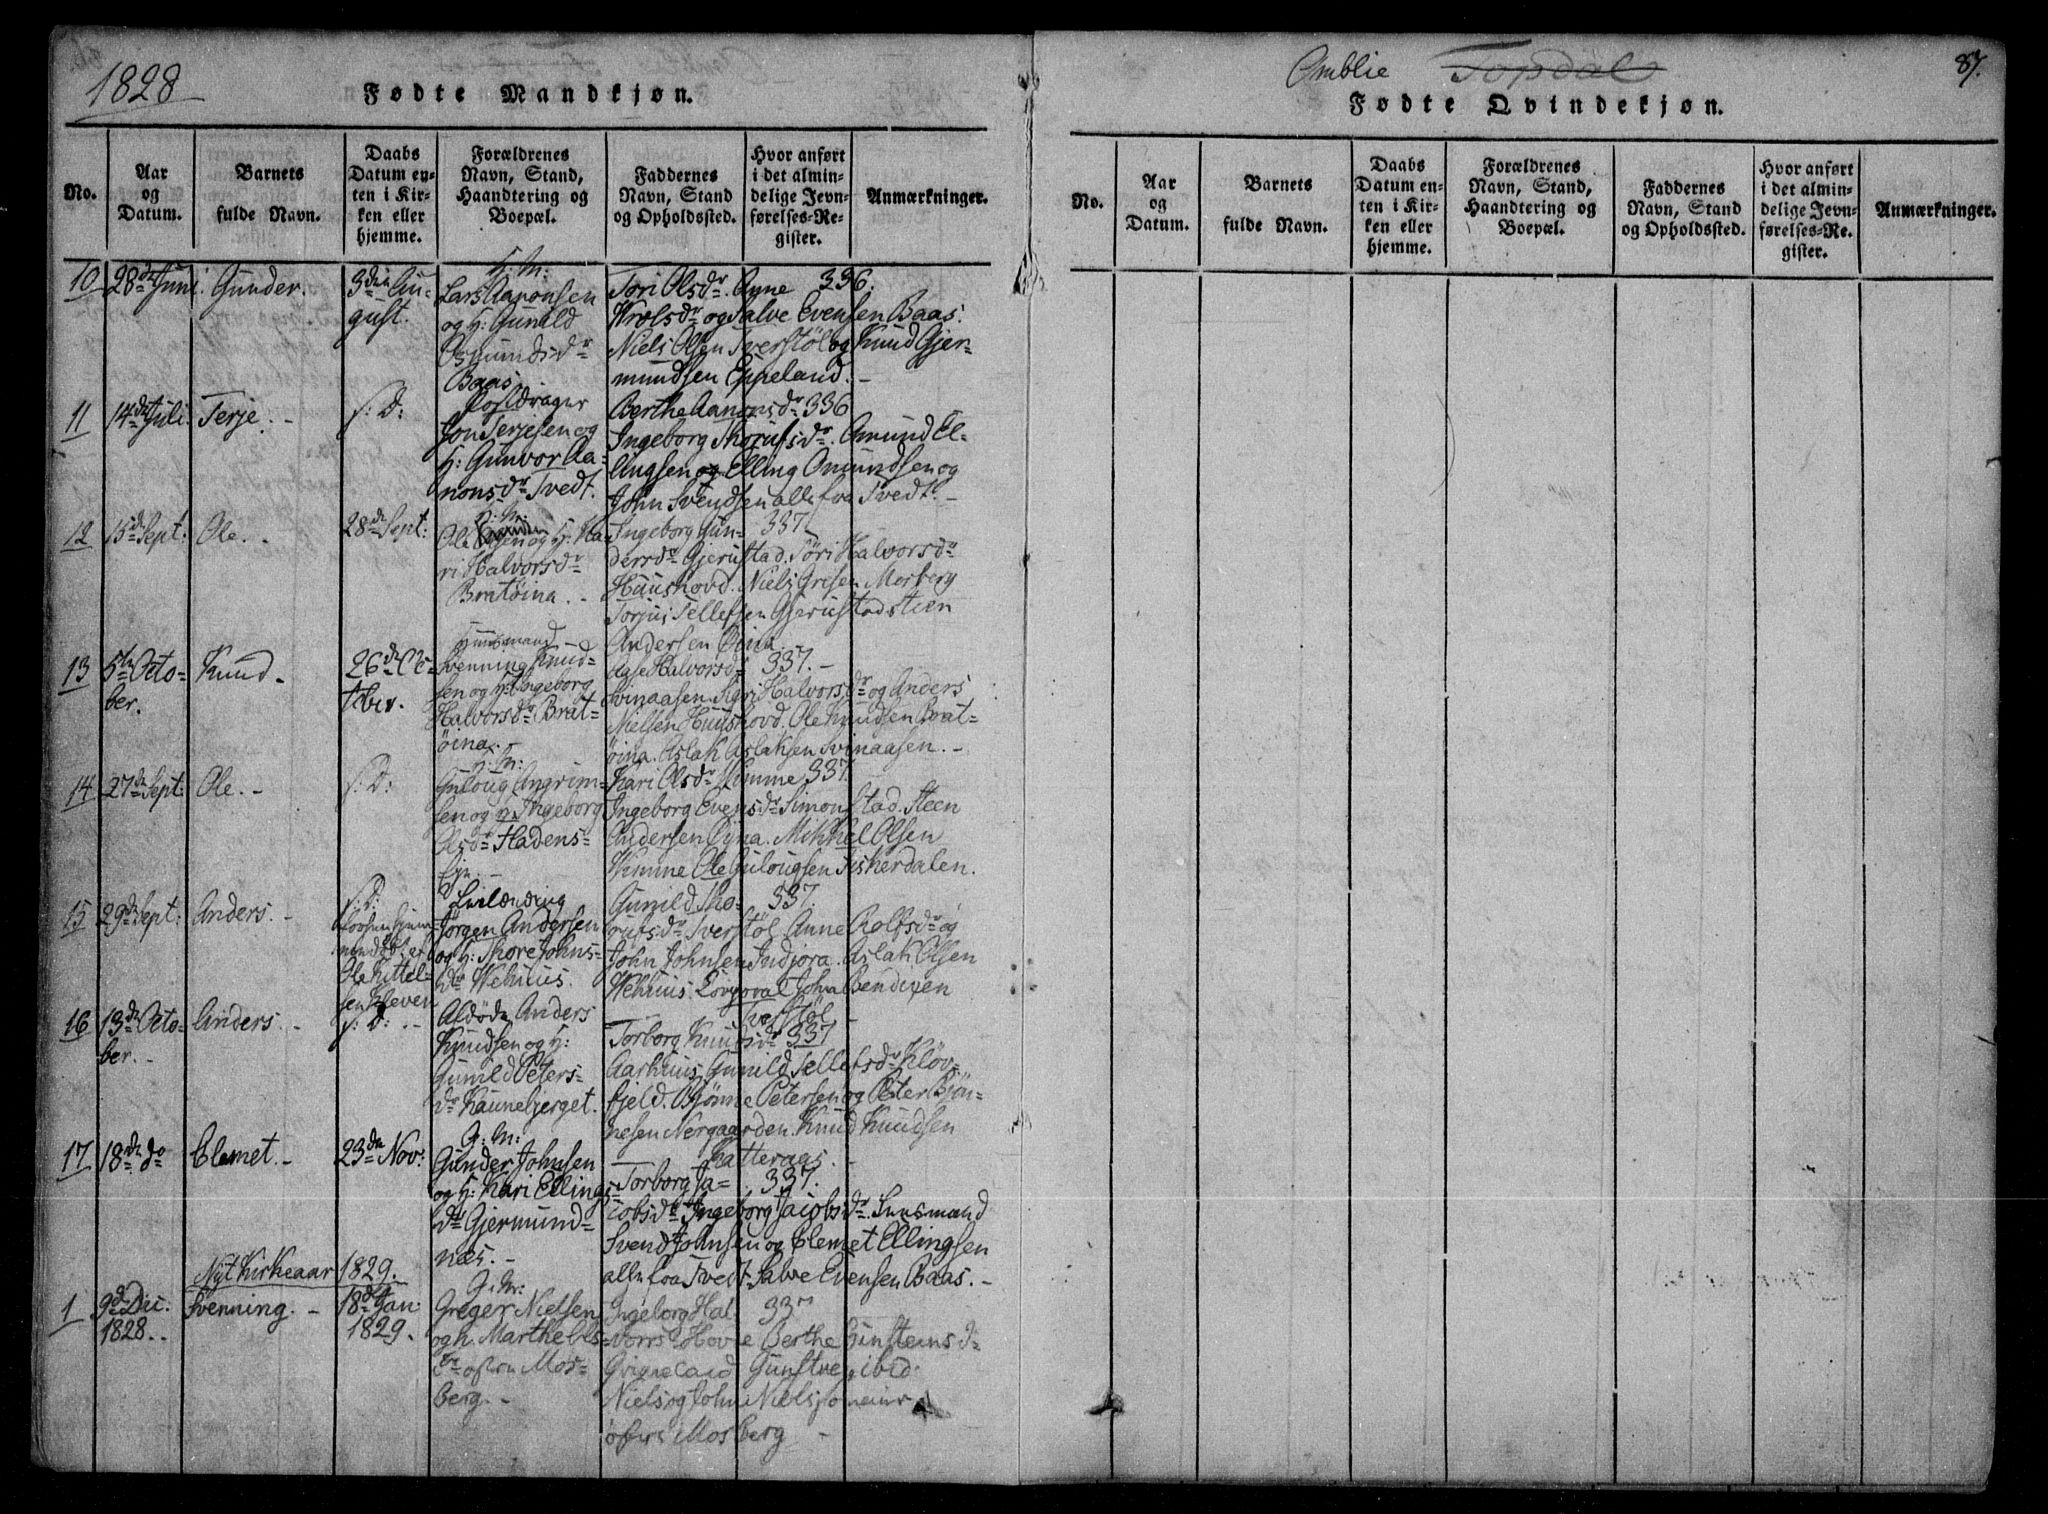 1828
Fødte Mandkjøn.
No.
Aar
og
Datum.
Barnets
fulde Navn.
Daabs
Datum en-
ten i Kir-
ken eller
hjemme.
Forældrenes
Navn, Stand,
Haandtering og
Boepæl.
Faddernes
Navn, Stand
og Opholdssted.
Hvor anført
i det almin-
delige Jevn-
førelses-Re-
gister.
Anmærkninger.
10
28de Juni
Gunder.
3die Au-
gust.
G: M:
Lars Aanonsen
og H: Gunild
Osmundsdr
Baas.
Tori Olsdr. Anne
Krolsdr og Salve Evensen Baas.
Niels Olsen Tverstöl og Knud Gjer-
mundsen Eppeland. -
336.
11
14de Juli.
Terje. -
s: D:
Postdrager
Jon Terjesen og
H: Gunvor Aa-
nonsdr Tvedt.
Berthe Aanonsdr
Ingeborg Thorufsdr. Omund El-
lingsen og Elling Omundsen og
John Svendsen alle fra Tvedt. -
336
12
15de Sept:
Ole. -
28de Sept:
G: M:
Ole Olsen og H: Ka-
ri Halvorsdr
Bratöina. -
Ingeborg Gun-
dersdr Gjerustad. Töri Halvorsdr
Huushovd. Niels Gresen Mosberg
Torjus Tellefsen Gjerustad Steen
Andersen Öina.
337
13
5te Octo-
ber.
Knud -
26de Oc-
tober.
Huusmand -
Svenning Knud-
sen og H: Ingeborg
Halvorsdr Brat-
öina.
Aase Halvorsdr
Svinaasen. Sigri Halvorsdr og Anders
Nielsen Huushovd. Ole Knudsen Brat-
öina. Aslak Aslaksen Svinaasen. -
337. -
14
27de Sept:
Ole. -
s: D:
G: M:
Guloug Angrim-
sen og H: Ingeborg
Olsdr Hadens-
Kari Olsdr Vimme
Ingeborg Evensdr Simonstad. Steen
Andersen Öyna. Mikkel Olsen
Vimme Ole Gulougsen Fiskerdalen.
337.
15
29de Sept:
Anders. -
s: D:
Ole Kittel-
sen Kleven
Leilænding
Jörgen Andersen
og H: Thore Johns-
dr Wehuus.
Gunild Tho-
rufsdr Tverstöl Anne Rolfsdr og
John Johnsen Indjora. Aslak Olsen
Wehuus. John Bendixen
Tverstöl -
337.
16
13de Octo-
ber. -
Anders. -
s: D: -
Anders
Knudsen og H:
Gunild Peters-
dr Haunebjerget.
Torborg Knudsdr
Aarhuus Gunild Tellefsdr Klöv-
fjeld. Bjönne Petersen og Peter Bjön-
nesen Nergaarden. Knud Knudsen
Katteraas. -
337
17
18de do
Clemet. -
23de Nov:
G: M:
Gunder Johnsen
og H: Kari Ellings-
dr Gjermund-
næs. -
Torborg Ja-
cobsdr Ingeborg Jacobsdr. Lensmand
Svend Johnsen og Clemet Ellingsen
alle fra Tvedt. Salve Evensen Baas. -
337.
Nyt Kirkeaar 1829.
1
9de Dec:
1828. -
Svenning. -
18de Jan:
1829.
G: M:
Greger Nielsen
og h. Marthe Ols-
dr öfre Mos-
berg. -
Ingeborg Hal-
vorsd Hovve Berthe Gunsteinsd-
Grigneland Gunstve ibid.
Niels og John Niels
öfre Mosberg -
337
Omblie Topdal
87.
Fødte Qvindekjøn.
No.
Aar
og
Datum.
Barnets
fulde Navn.
Daabs
Datum en-
ten i Kir-
ken eller
hjemme.
Forældrenes
Navn, Stand,
Haandtering og
Boepæl.
Faddernes
Navn, Stand
og Opholdssted.
Hvor anført
i det almin-
delige Jevn-
førelses-Re-
gister.
Anmærkninger.